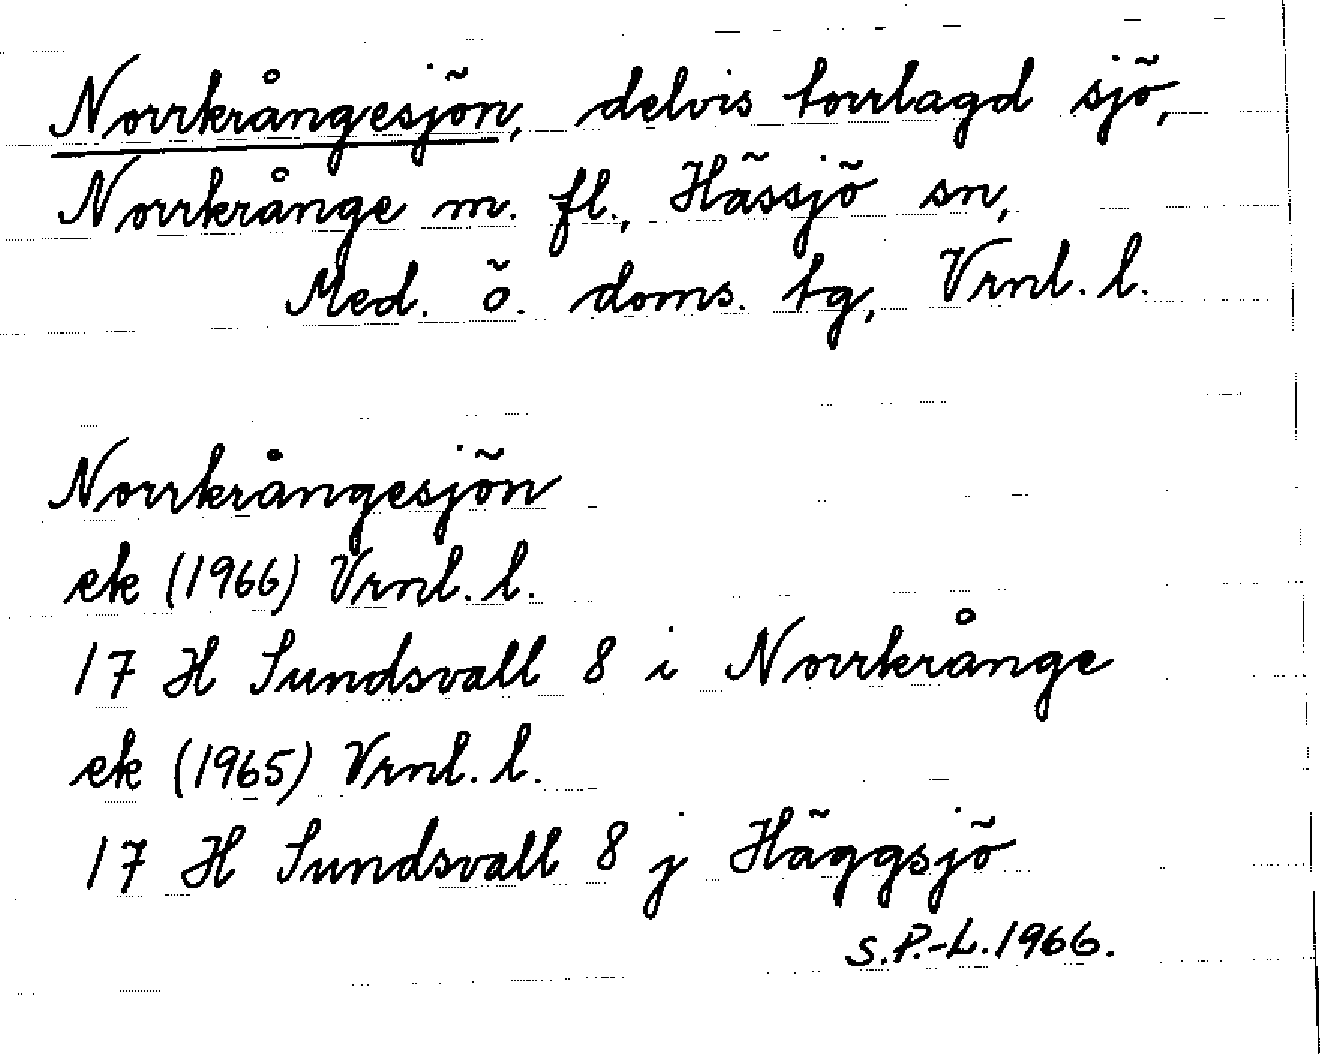 Norrkrångesjön, delvis torrlagd sjö,
Norrkrånge m. fl., Hässjö sn,
Med. ö. doms. tg, Vrnl. l.
Norrkrångesjön
ek (1966) Vrnl. l.
17 H Sundsvall 8 i Norrkrånge
ek (1965) Vrnl. l.
17 H Sundsvall 8 j Häggsjö
S.P.-L. 1966.